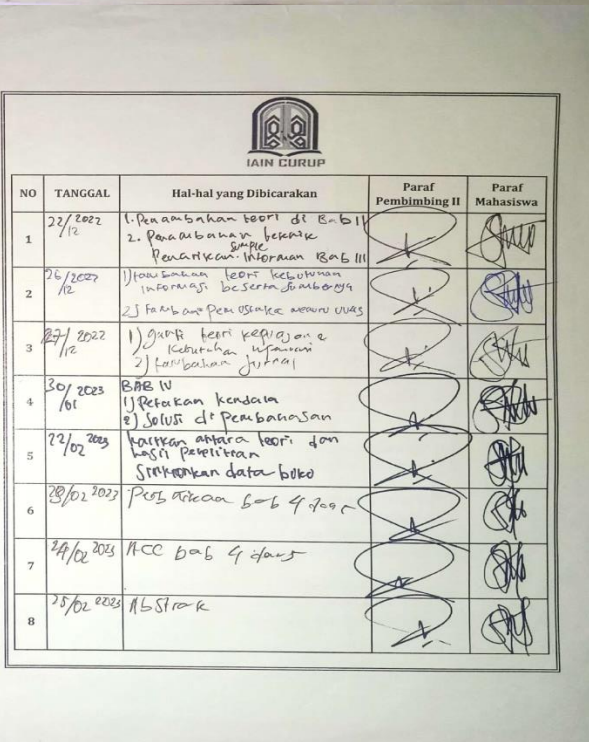 IAIN CURUP
NO TANGGAL Hal-hal yang Dibicarakan Paraf Pembimbing II Paraf Mahasiswa
1 22/12 2022 1. Penambahan teori di Bab II
2. Penambahan teknik
sample
Penarikan Informan Bab III
2 26/12 2022 1) tambahan teori kebutuhan
Informasi beserta Sumbernya
2) tambah
3 27/12 2022 1) ganti teori
Kebutuhan
2) tambahan Jurnal
4 30/01 2023 BAB IV
1) Petakan Kendala
2) Solusi di Pembahasan
5 22/02 2023 kaitkan antara teori dan
hasil Penelitian
Sinkronkan data
6 23/02 2023 bab 4
7 24/02 2023 ACC bab 4 dan 5
8 25/02 2023 Abstrak